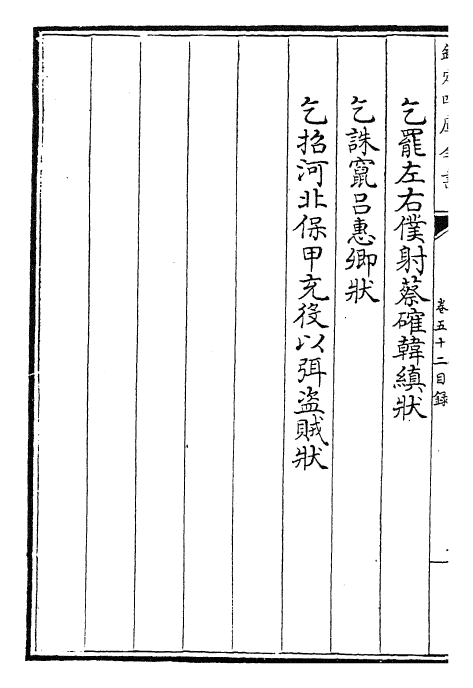 欽定四庫全書
卷五十二目錄
乞罷左右僕射蔡確韓縝狀
乞誅竄呂惠卿狀
乞招河北保甲充役以弭盜賊狀